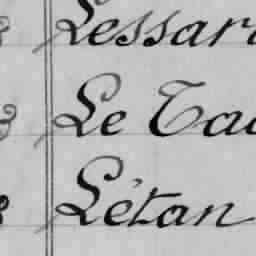 Lessar
Le Tac
Létan